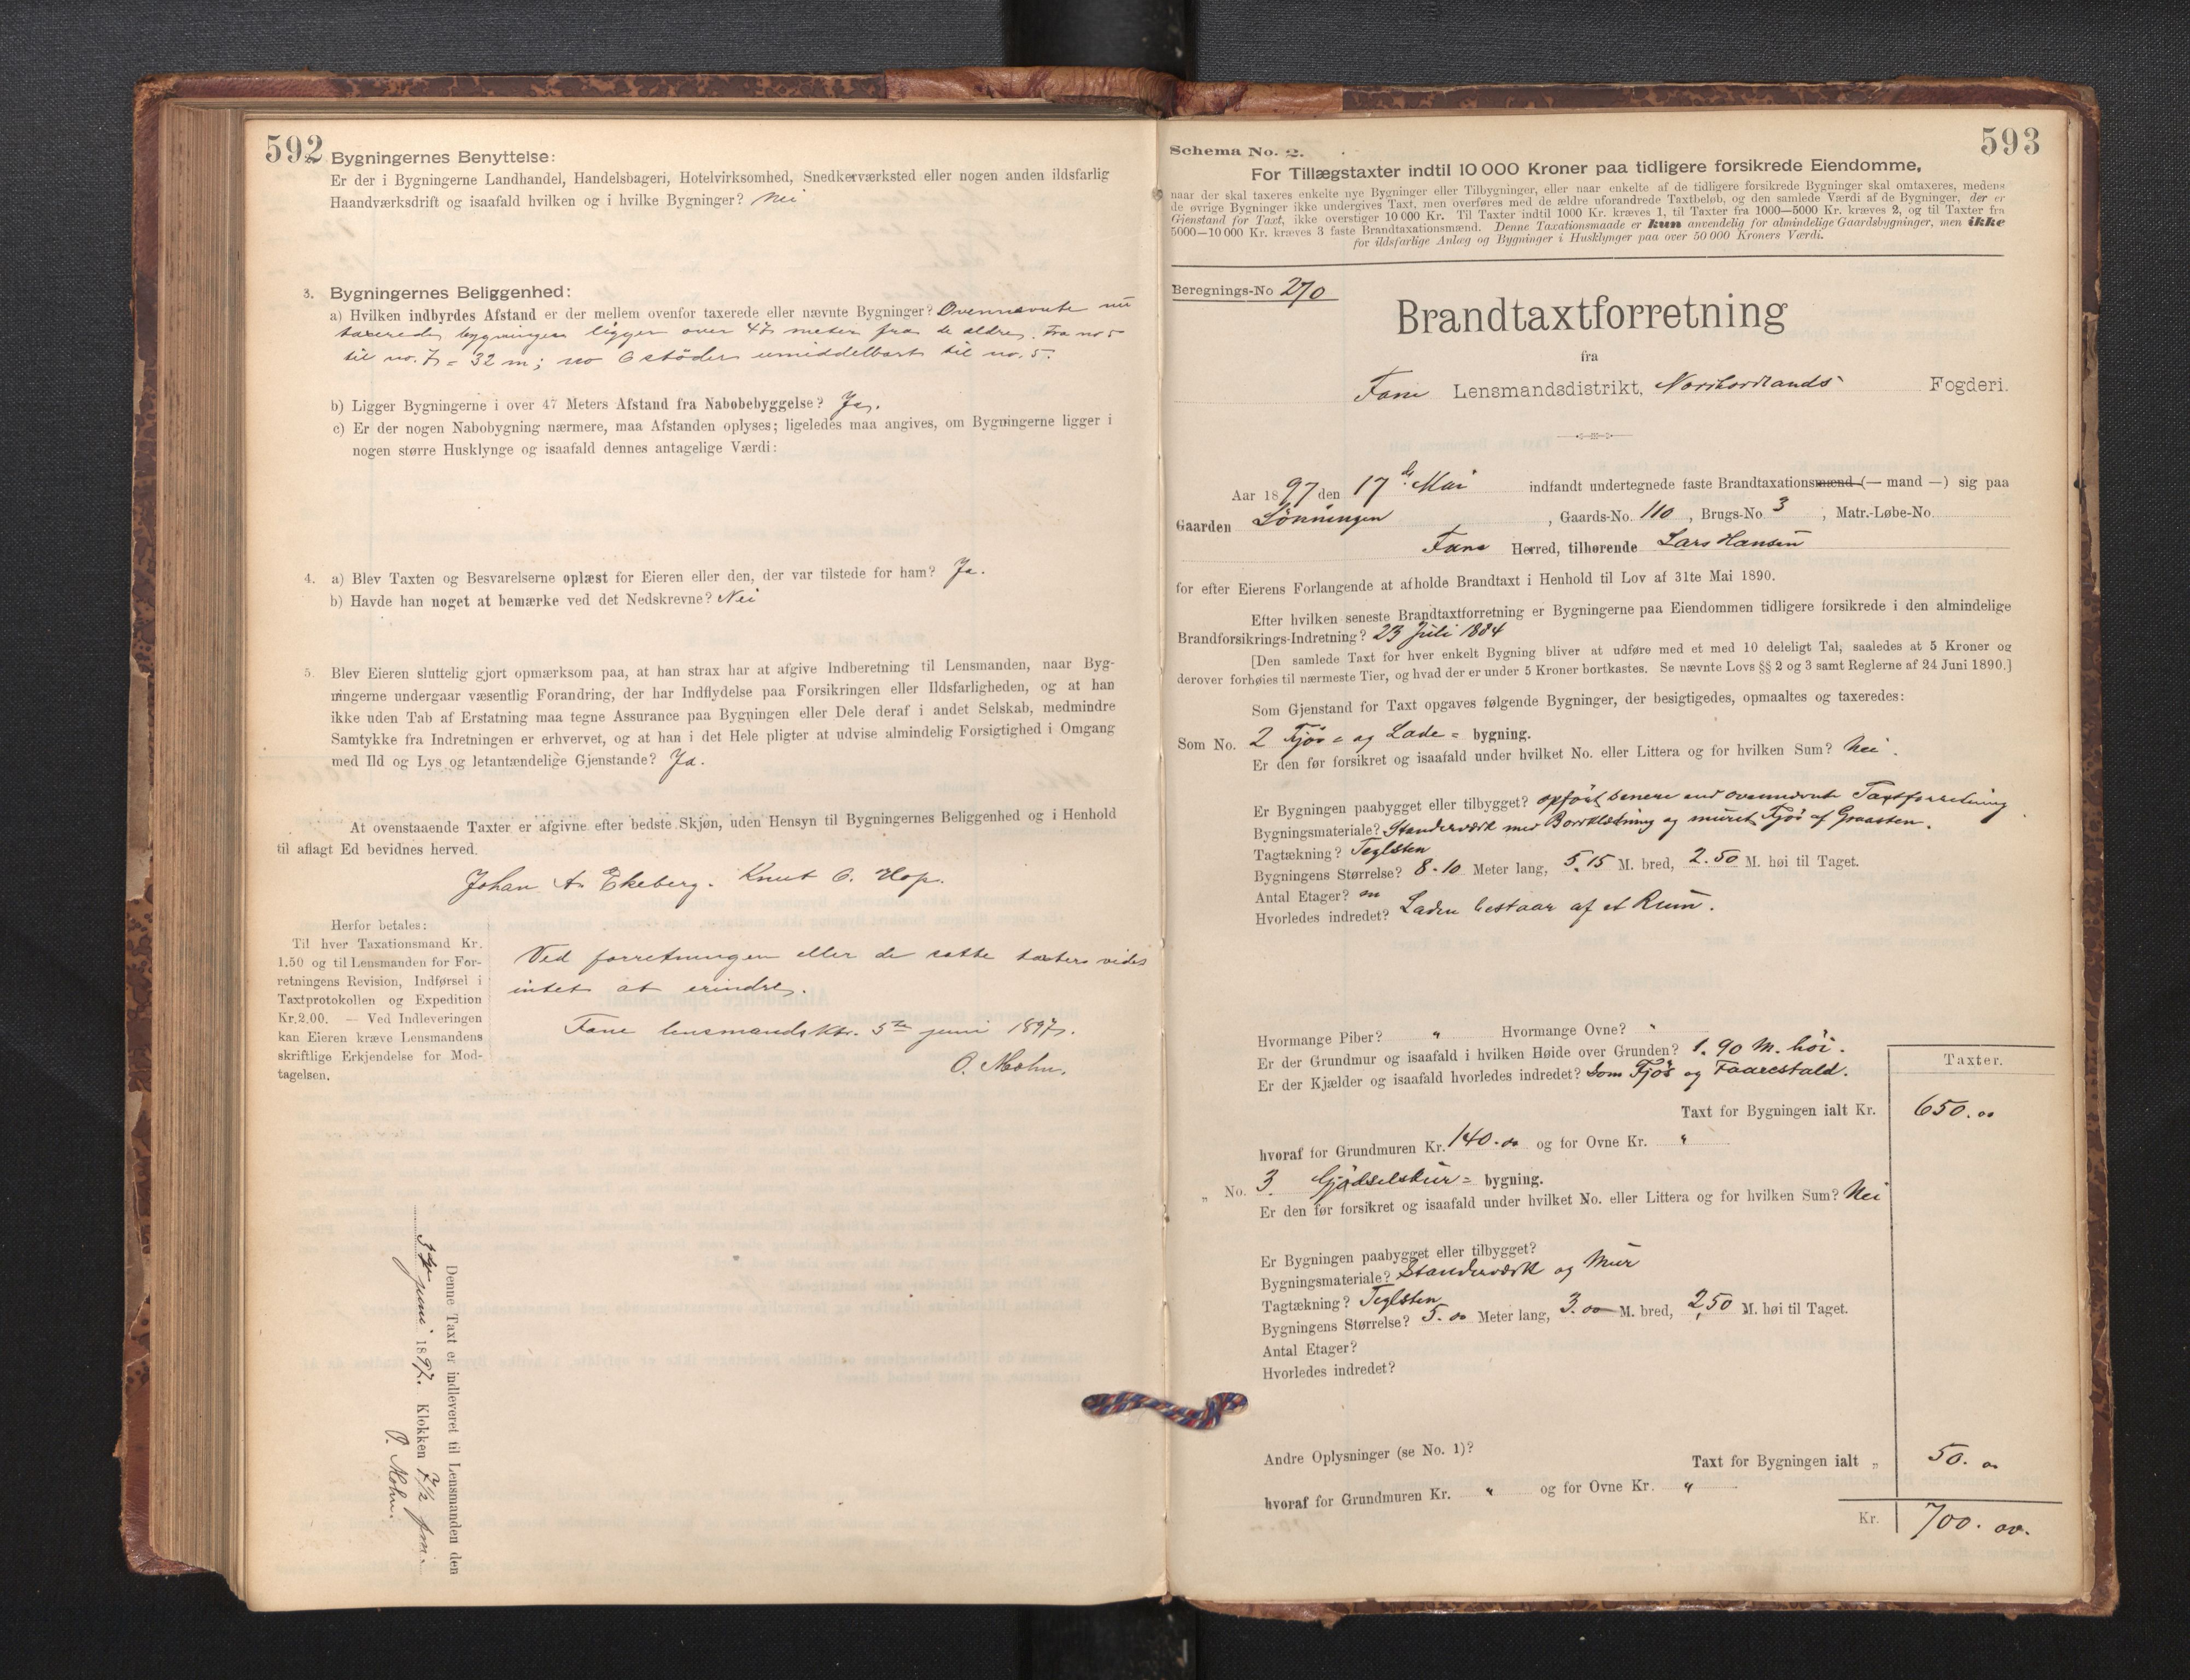 592
Bygningernes Benyttelse:
Er der i Bygningerne Landhandel, Handelsbageri, Hotelvirksomhed, Snedkerværksted eller nogen anden ildsfarlig
Haandværksdrift og isaafald hvilken og i hvilke Bygninger? Nei
3. Bygningernes Beliggenhed:
a) Hvilken indbyrdes Afstand er der mellem ovenfor taxerede eller nævnte Bygninger? Ovennævnte nu
taxerede bygninger ligger over 47 meter fra de ældre. Fra no 5
til no. 7 = 32 m; no 6 støder umiddelbart til no. 5.
b) Ligger Bygningerne i over 47 Meters Afstand fra Nabobebyggelse? Ja.
c) Er der nogen Nabobygning nærmere, maa Afstanden oplyses; ligeledes maa angives, om Bygningerne ligger i
nogen større Husklynge og isaafald dennes antagelige Værdi:
4. a) Blev Taxten og Besvarelserne oplæst for Eieren eller den, der var tilstede for ham? Ja.
b) Havde han noget at bemærke ved det Nedskrevne? Nei
5. Blev Eieren sluttelig gjort opmærksom paa, at han strax har at afgive Indberetning til Lensmanden, naar Byg-
ningerne undergaar væsentlig Forandring, der har Indflydelse paa Forsikringen eller Ildsfarligheden, og at han
ikke uden Tab af Erstatning maa tegne Assurance paa Bygningen eller Dele deraf i andet Selskab, medmindre
Samtykke fra Indretningen er erhvervet, og at han i det Hele pligter at udvise almindelig Forsigtighed i Omgang
med Ild og Lys og letantændelige Gjenstande? Ja.
At ovenstaaende Taxter er afgivne efter bedste Skjøn, uden Hensyn til Bygningernes Beliggenhed og i Henhold
til aflagt Ed bevidnes herved.
Johan A. Ekeberg. Knut O. Hop.
Herfor betales:
Til hver Taxationsmand Kr.
1.50 og til Lensmanden for For-
retningens Revision, Indførsel i
Taxtprotokollen og Expedition
Kr. 2.00. — Ved Indleveringen
kan Eieren kræve Lensmandens
skriftlige Erkjendelse for Mod-
tagelsen.
Ved forretningen eller de satte taxter vides
intet at erindre.
Fane lensmandsktr. 5te juni 1897.
O. Mohn.
Denne Taxt er indleveret til Lensmanden den
juni 1897. Klokken 7 1/2 fm.
O. Mohn.
593
Schema No. 2.
For Tillægstaxter indtil 10 000 Kroner paa tidligere forsikrede Eiendomme,
naar der skal taxeres enkelte nye Bygninger eller Tilbygninger, eller naar enkelte af de tidligere forsikrede Bygninger skal omtaxeres, medens
de øvrige Bygninger ikke undergives Taxt, men overføres med de ældre uforandrede Taxtbeløb, og den samlede Værdi af de Bygninger, der er
Gjenstand for Taxt, ikke overstiger 10 000 Kr. Til Taxter indtil 1000 Kr. kræves 1, til Taxter fra 1000—5000 Kr. kræves 2, og til Taxter fra
5000—10 000 Kr. kræves 3 faste Brandtaxationsmænd. Denne Taxationsmaade er kun anvendelig for almindelige Gaardsbygninger, men ikke
for ildsfarlige Anlæg og Bygninger i Husklynger paa over 50 000 Kroners Værdi.
Beregnings-No 270
Brandtaxtforretning
fra
Fane Lensmandsdistrikt, Nordhordlands Fogderi.
Aar 1897 den 17de Mai indfandt undertegnede faste Brandtaxationsmænd (— mand —) sig paa
Gaarden Lønningen , Gaards-No. 110 , Brugs-No. 3 , Matr.-Løbe-No.
Fane Herred, tilhørende Lars Hansen
for efter Eierens Forlangende at afholde Brandtaxt i Henhold til Lov af 31te Mai 1890.
Efter hvilken seneste Brandtaxtforretning er Bygningerne paa Eiendommen tidligere forsikrede i den almindelige
Brandforsikrings-Indretning? 23 Juli 1884
[Den samlede Taxt for hver enkelt Bygning bliver at udføre med et med 10 deleligt Tal, saaledes at 5 Kroner og
derover forhøies til nærmeste Tier, og hvad der er under 5 Kroner bortkastes. Se nævnte Lovs §§ 2 og 3 samt Reglerne af 24 Juni 1890.]
Som Gjenstand for Taxt opgaves følgende Bygninger, der besigtigedes, opmaaltes og taxeredes:
Som No. 2 Fjøs= og Lade= bygning.
Er den før forsikret og isaafald under hvilket No. eller Littera og for hvilken Sum? Nei.
Er Bygningen paabygget eller tilbygget? opført senere end ovennævnte Taxtforretning
Bygningsmateriale? Standerværk med Bordklædning og muret Fjøs af Graasten.
Tagtækning? Teglsten
Bygningens Størrelse? 8.10 Meter lang, 5.15 M. bred, 2.50 M. høi til Taget.
Antal Etager? en
Hvorledes indredet? Laden bestaar af et Rum.
Hvormange Piber? " Hvormange Ovne? "
Er der Grundmur og isaafald i hvilken Høide over Grunden? 1.90 M. høi.
Er der Kjælder og isaafald hvorledes indredet? Som Fjøs og Faarestald.
Taxter.
Taxt for Bygningen ialt Kr. 650.00
hvoraf for Grundmuren Kr. 140.00 og for Ovne Kr. "
„ No. 3. Gjødselskur= bygning.
Er den før forsikret og isaafald under hvilket No. eller Littera og for hvilken Sum? Nei
Er Bygningen paabygget eller tilbygget?
Bygningsmateriale? Standerværk og Mur
Tagtækning? Teglsten
Bygningens Størrelse? 5.00 Meter lang, 3.00 M. bred, 2,50 M. høi til Taget.
Antal Etager?
Hvorledes indredet?
Andre Oplysninger (se No. 1)?
Taxt for Bygningen ialt „ 50.00
hvoraf for Grundmuren Kr. " og for Ovne Kr. "
Kr. 700.00.